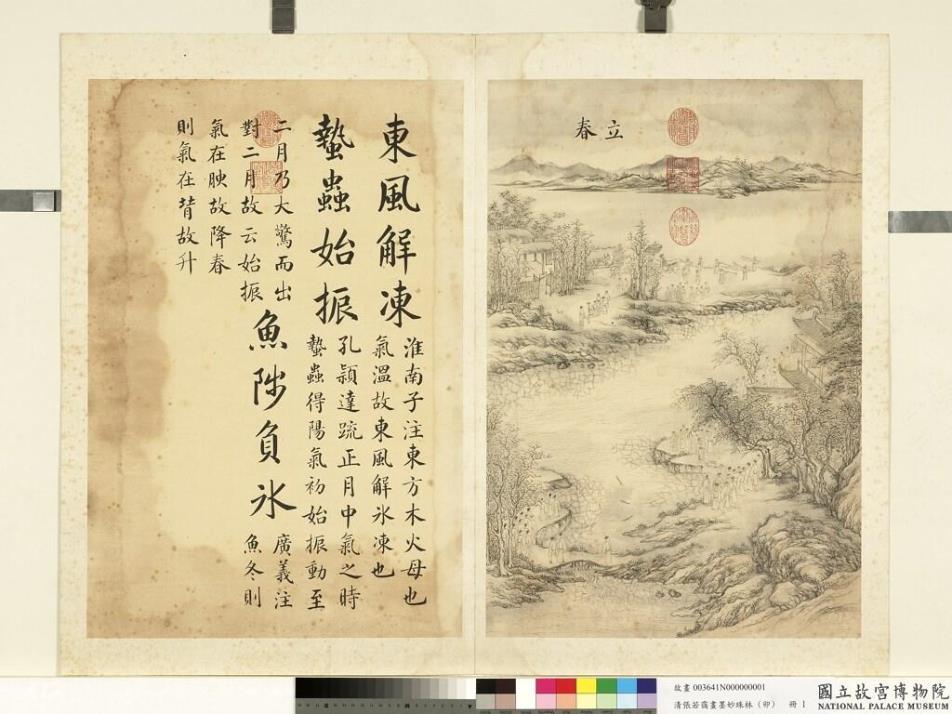 立春
東風解凍
淮南子注東方木火母也
氣溫故東風解氷凍也
蟄蟲始振
孔穎達疏正月中氣之時
蟄蟲得陽氣初始振動至
二月乃大驚而出
對二月故云始振
魚陟負氷
廣義注
魚冬則
氣在腴故降春
則氣在故升
故畫 003641N000000001
清張若靄畫墨妙珠林（卯） 冊 1
國立故宮博物院
NATIONAL PALACE MUSEUM